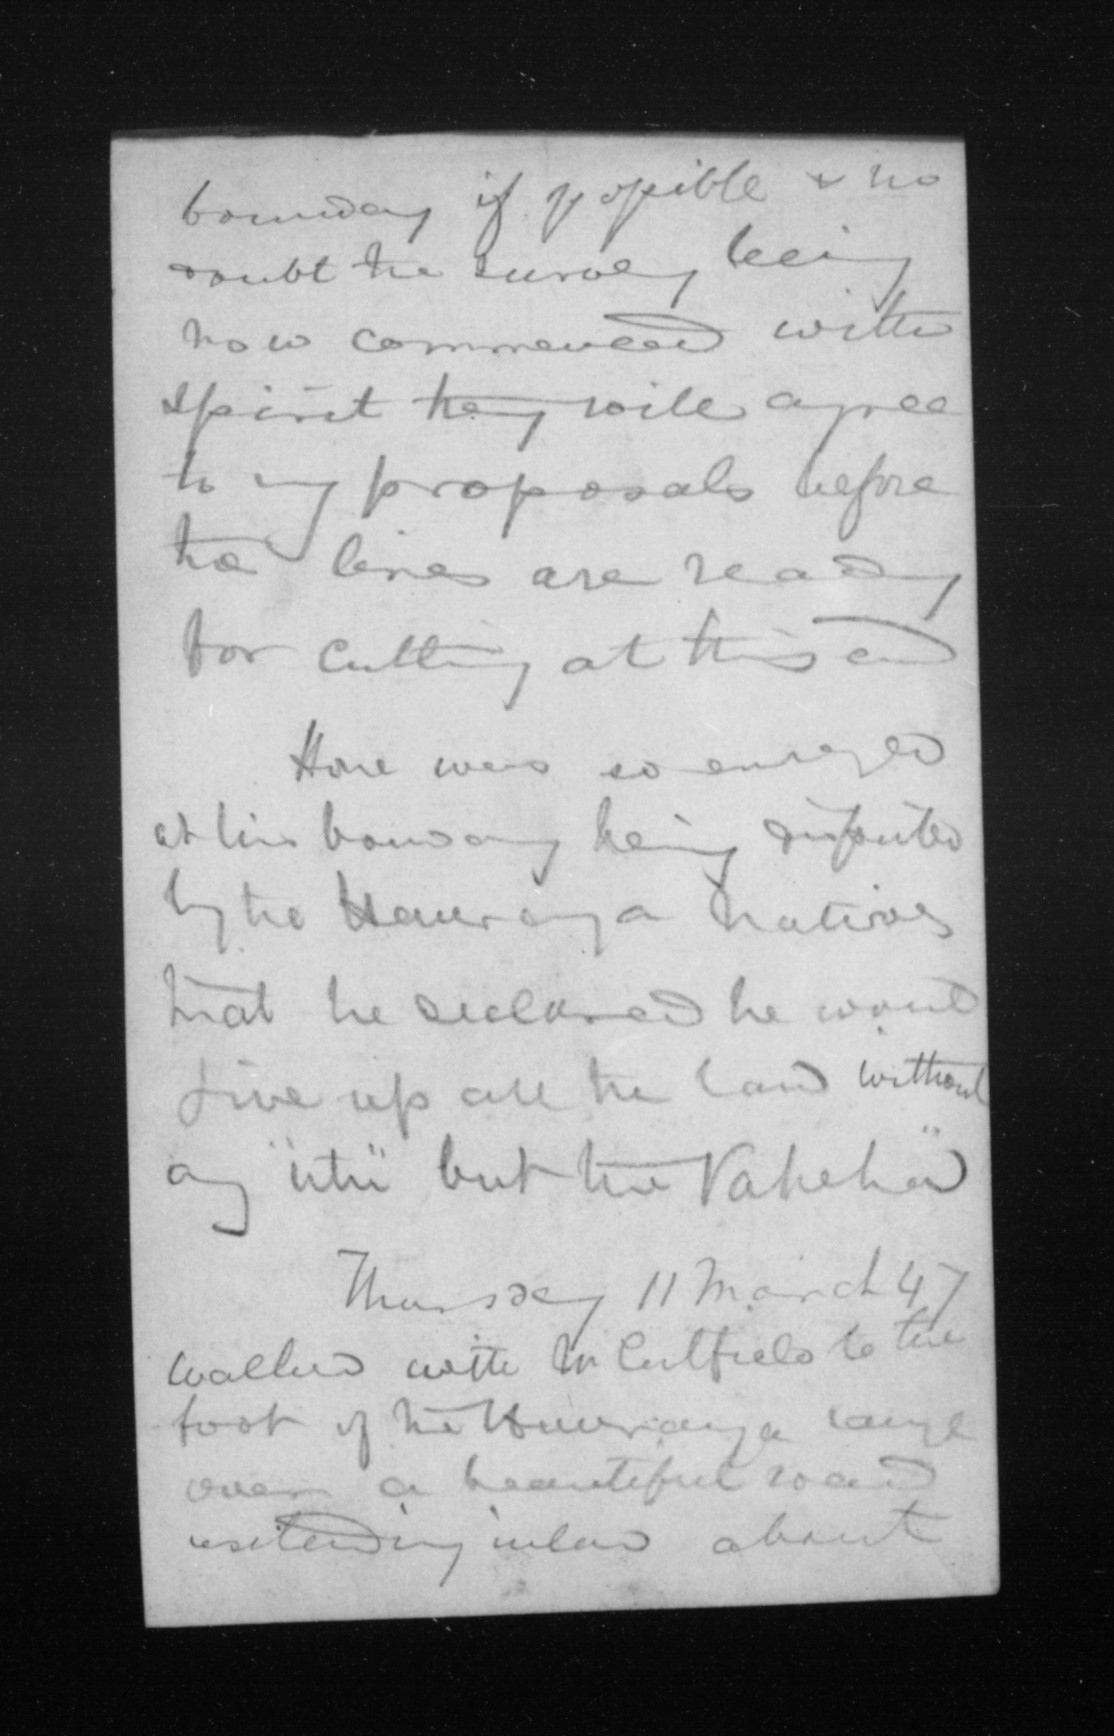 boundary if possible & no
doubt the survey being
now commenced with
spirit they will agree
to my proposals before
the lines are ready
for cutting at this end
Hone was so enraged
at his boundary being disputed
by the Haurangа natives
that he declared he would
give up all the land without
any "utu" but the Pakeha's
Thursday 11 March 47
Walked with Mr Caulfield to the
foot of the Hauranga range
over a beautiful road
extending inland about